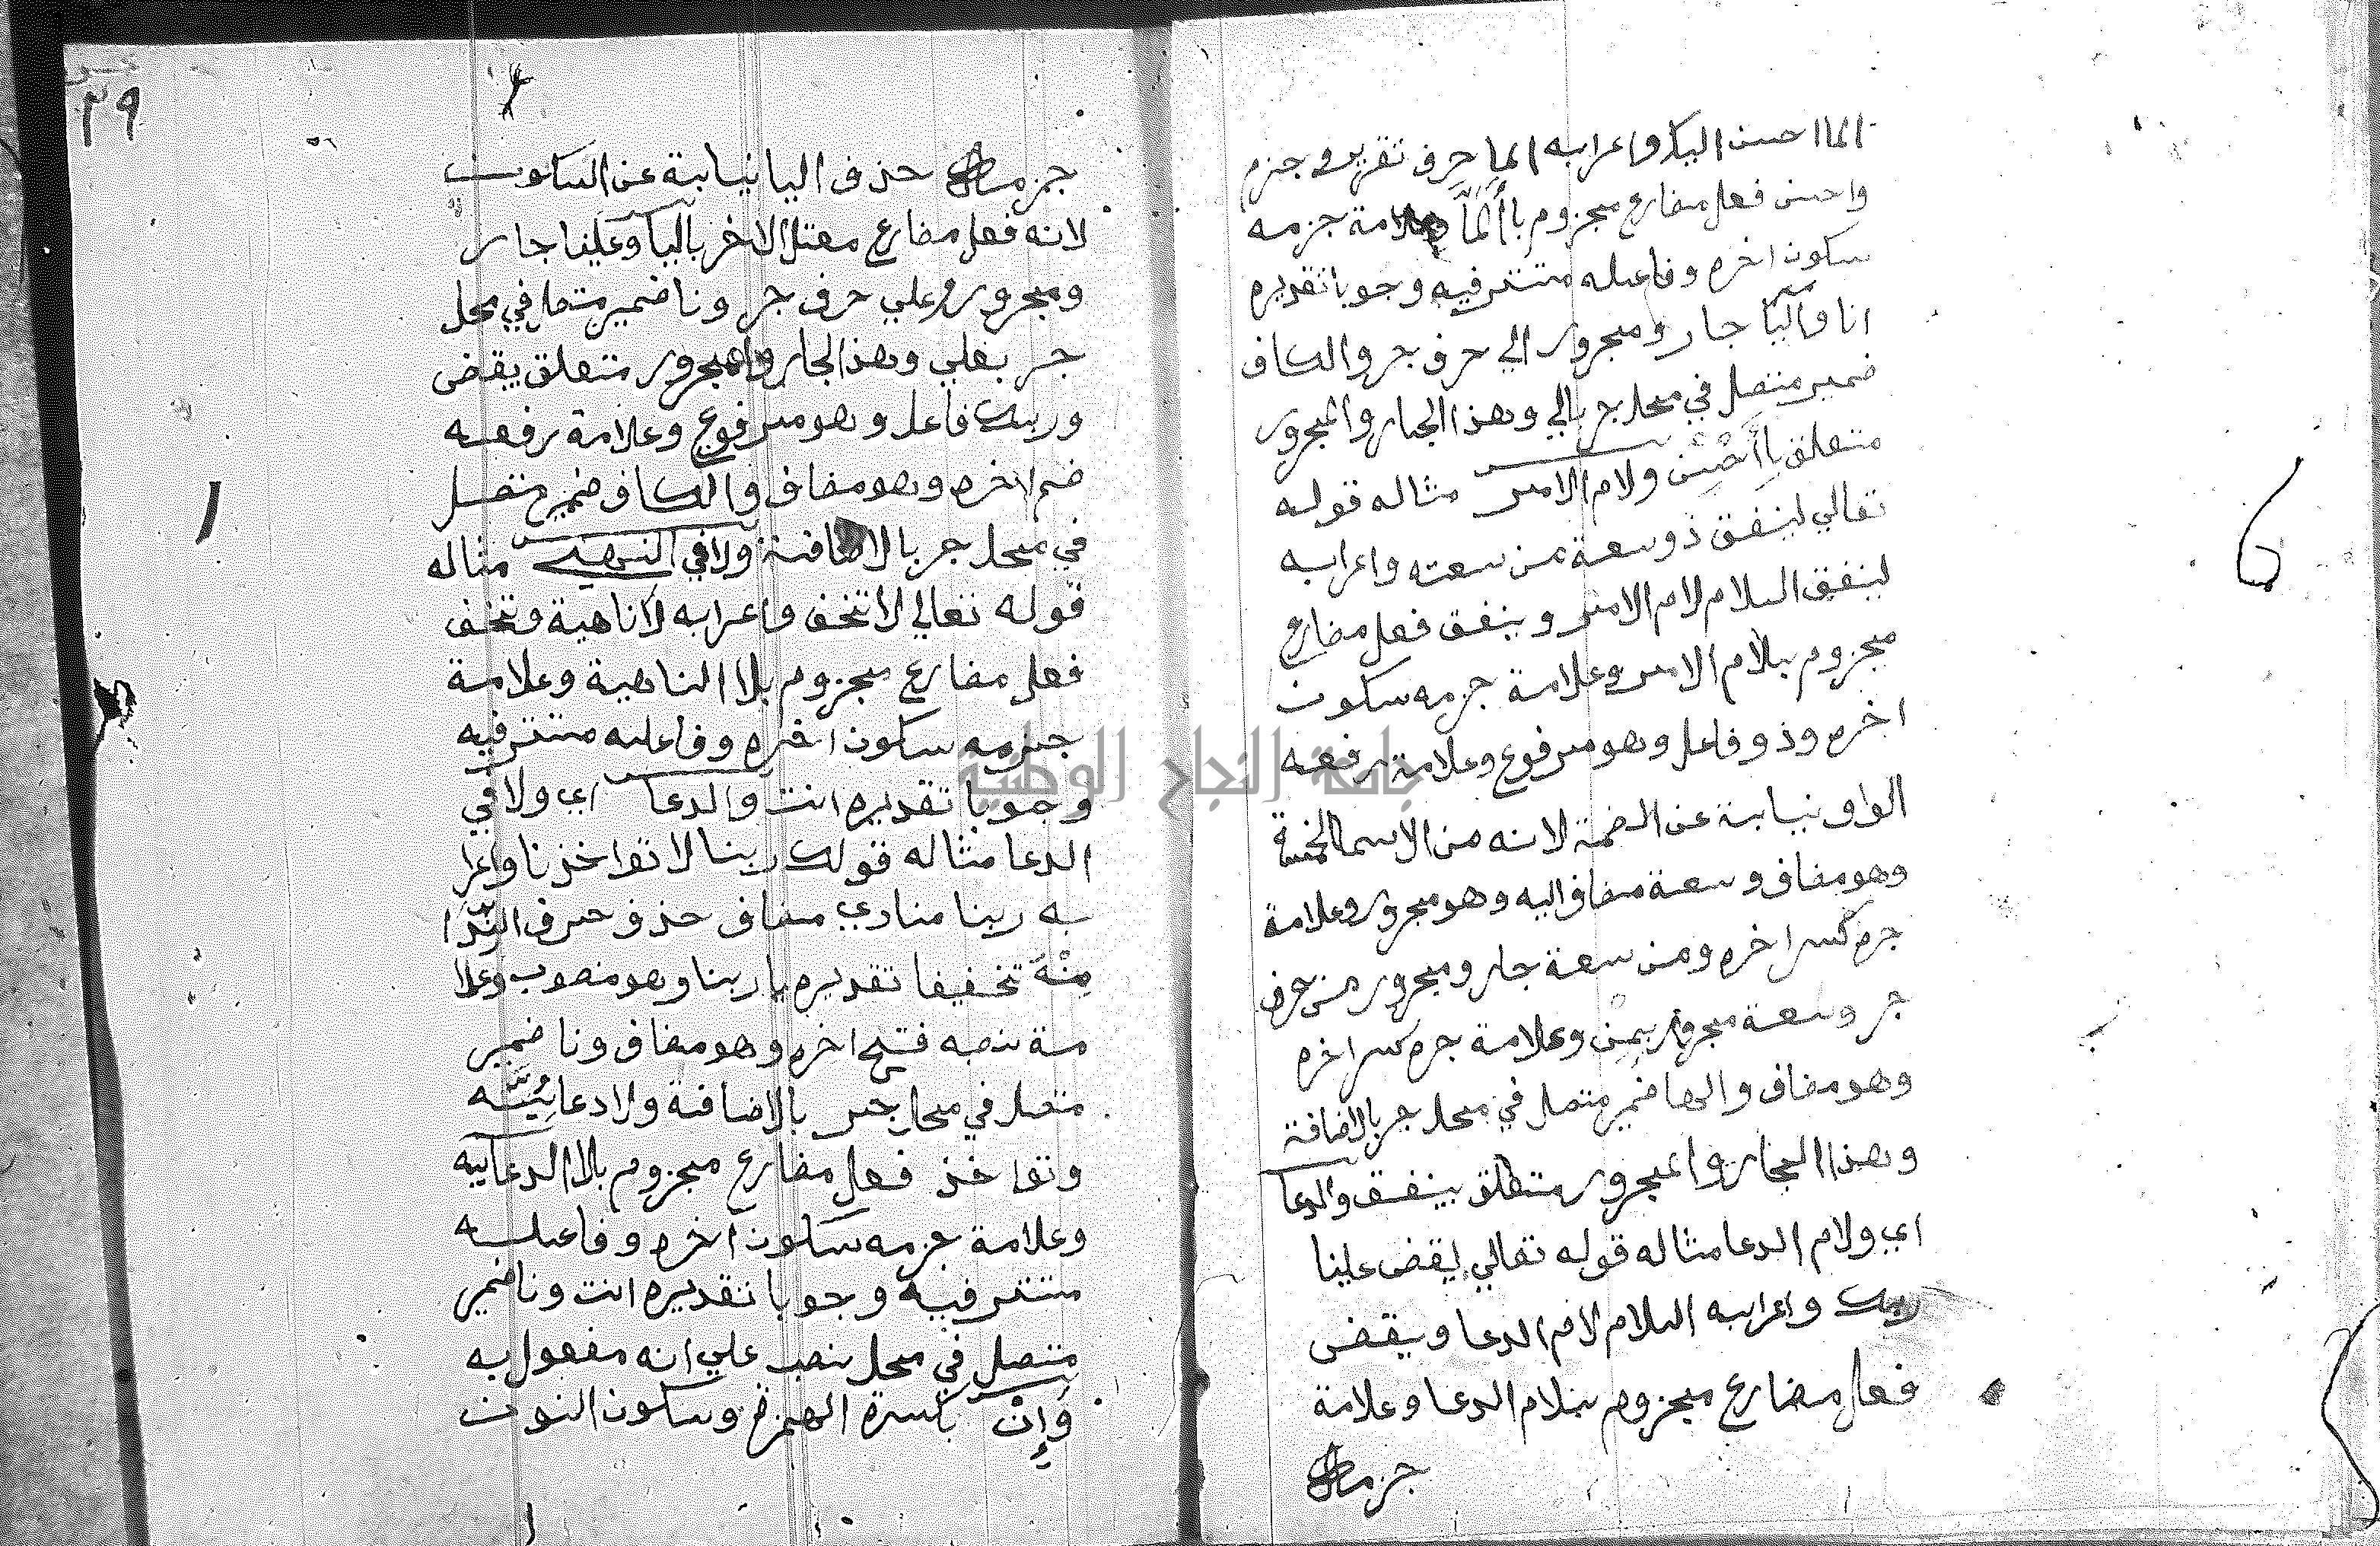 الما احسن اليك واعرابه الما حرف تقرير وجزم
واحسن فعل مضارع مجزوم باألمّا وعلامة جزمه
سكون اخره وفاعله مستتر فيه وجوبا تقديره
انا واليك جار ومجرور الي حرف جر والكاف
ضمير متصل في محل جر بالي وهذا الجار والمجرور
متعلق باأحسن ولام الامر مثاله قوله
تعالي لينفق ذو سعة من سعته واعرابه
لينفق اللام لام الامر وينفق فعل مضارع
مجزوم بلام الامر وعلامة جزمه سكون
اخره وذو فاعل وهو مرفوع وعلامة رفعه
الواو نيابة عن الضمة لانه من الاسما الخمسة
وهو مضاف وسعة مضاف اليه وهو مجرور وعلامة
جره كسر اخره ومن سعة جار ومجرور من حرف
جر وسعة مجرور بمن وعلامة جره كسر اخره
وهو مضاف والها ضمير متصل في محل جر بالاضافة
وهذا الجار والمجرور متعلق بينفق والدعا
اي ولام الدعا مثاله قوله تعالي ليقض علينا
ربك واعرابه اللام لام الدعا ويقضي
فعل مضارع مجزوم بلام الدعا وعلامة
جزمه
٢٩
جزمه حذف اليا نيابة عن السكون
لانه فعل مضارع معتل الاخر باليا وعلينا جار
ومجرور وعلي حرف جر ونا ضمير متصل في محل
جر بعلي وهذا الجار والمجرور متعلق يقضى
وربك فاعل وهو مرفوع وعلامة رفعه
ضم اخره وهو مضاف والكاف ضمير متصل
في محل جر بالاضافة ولا في النهي مثاله
قوله تعالي لا تخف واعرابه لا ناهية وتخف
فعل مضارع مجزوم بلا الناهية وعلامة
جزمه سكون اخره وفاعله مستتر فيه
وجوبا تقديره انت والدعا اي ولا في
الدعا مثاله قولك ربنا لا تواخذنا واعرا
به ربنا منادي مضاف حذف حرف الندا
منه تخفيفا تقديره يا ربنا وهو منصوب وعلا
مة نصبه فتح اخره وهو مضاف ونا ضمير
متصل في محل جر بالاضافة ولا دعائية
وتواخذ فعل مضارع مجزوم بالا الدعاييه
وعلامة جزمه سكون اخره وفاعله
مستتر فيه وجوبا تقديره انت ونا ضمير
متصل في محل نصب علي انه مفعول به
وإن بكسرة الهمزة وسكون النون
جامعة النجاح الوطنية